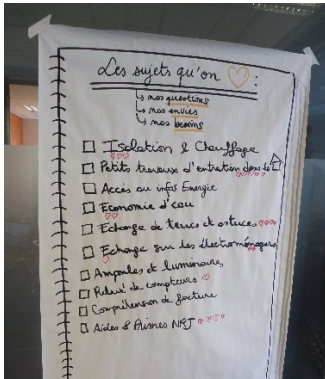 Les sujets qu'on ♡ :
↳ nos questions
↳ nos envies
↳ nos besoins
☐ Isolation & Chauffage
☐ Petits travaux d'entretien dans la
☐ Accès au infos Energie
☐ Economie d'eau
☐ Echange de trucs et astuces
☐ Echange sur les électroménagers
☐ Ampoules et luminaires
☐ Relevé de compteurs
☐ Compréhension de facture
☐ Aides & Primes NRJ